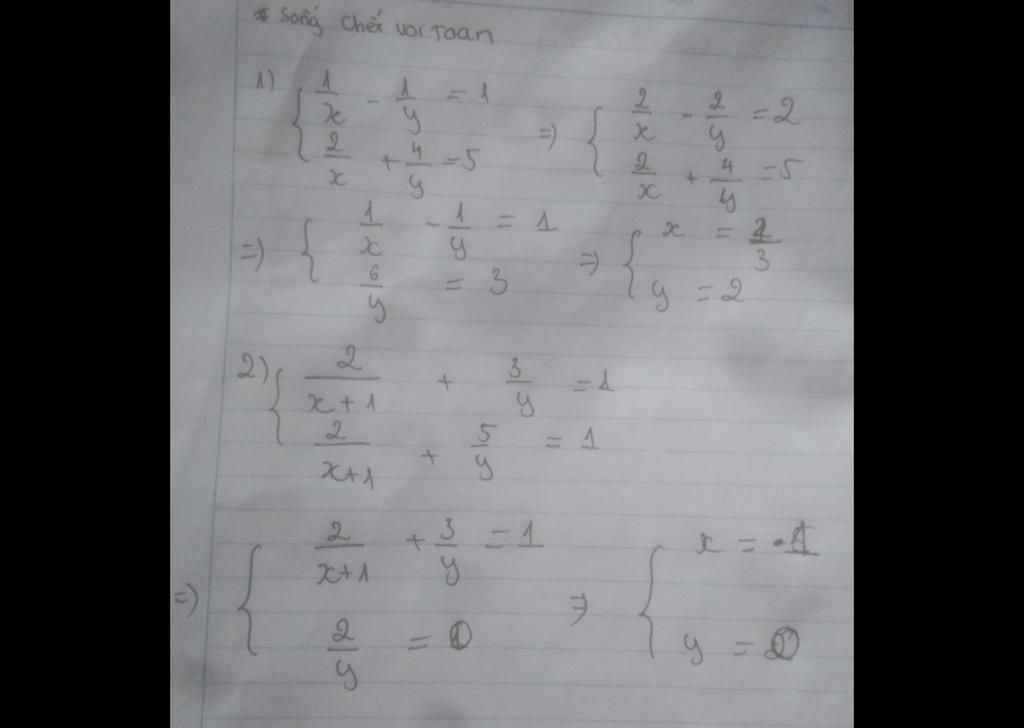 * Sống chết với Toán
1) { 1/x - 1/y = 1 => { 2/x - 2/y = 2
2/x + 4/y = 5 2/x + 4/y = 5
=) { 1/x - 1/y = 1 => { x = 2/3
6/y = 3 y = 2
2) { 2/x+1 + 3/y = 1
2/x+1 + 5/y = 1
=) { 2/x+1 + 3/y = 1 => { x =
2/y = 0 y =